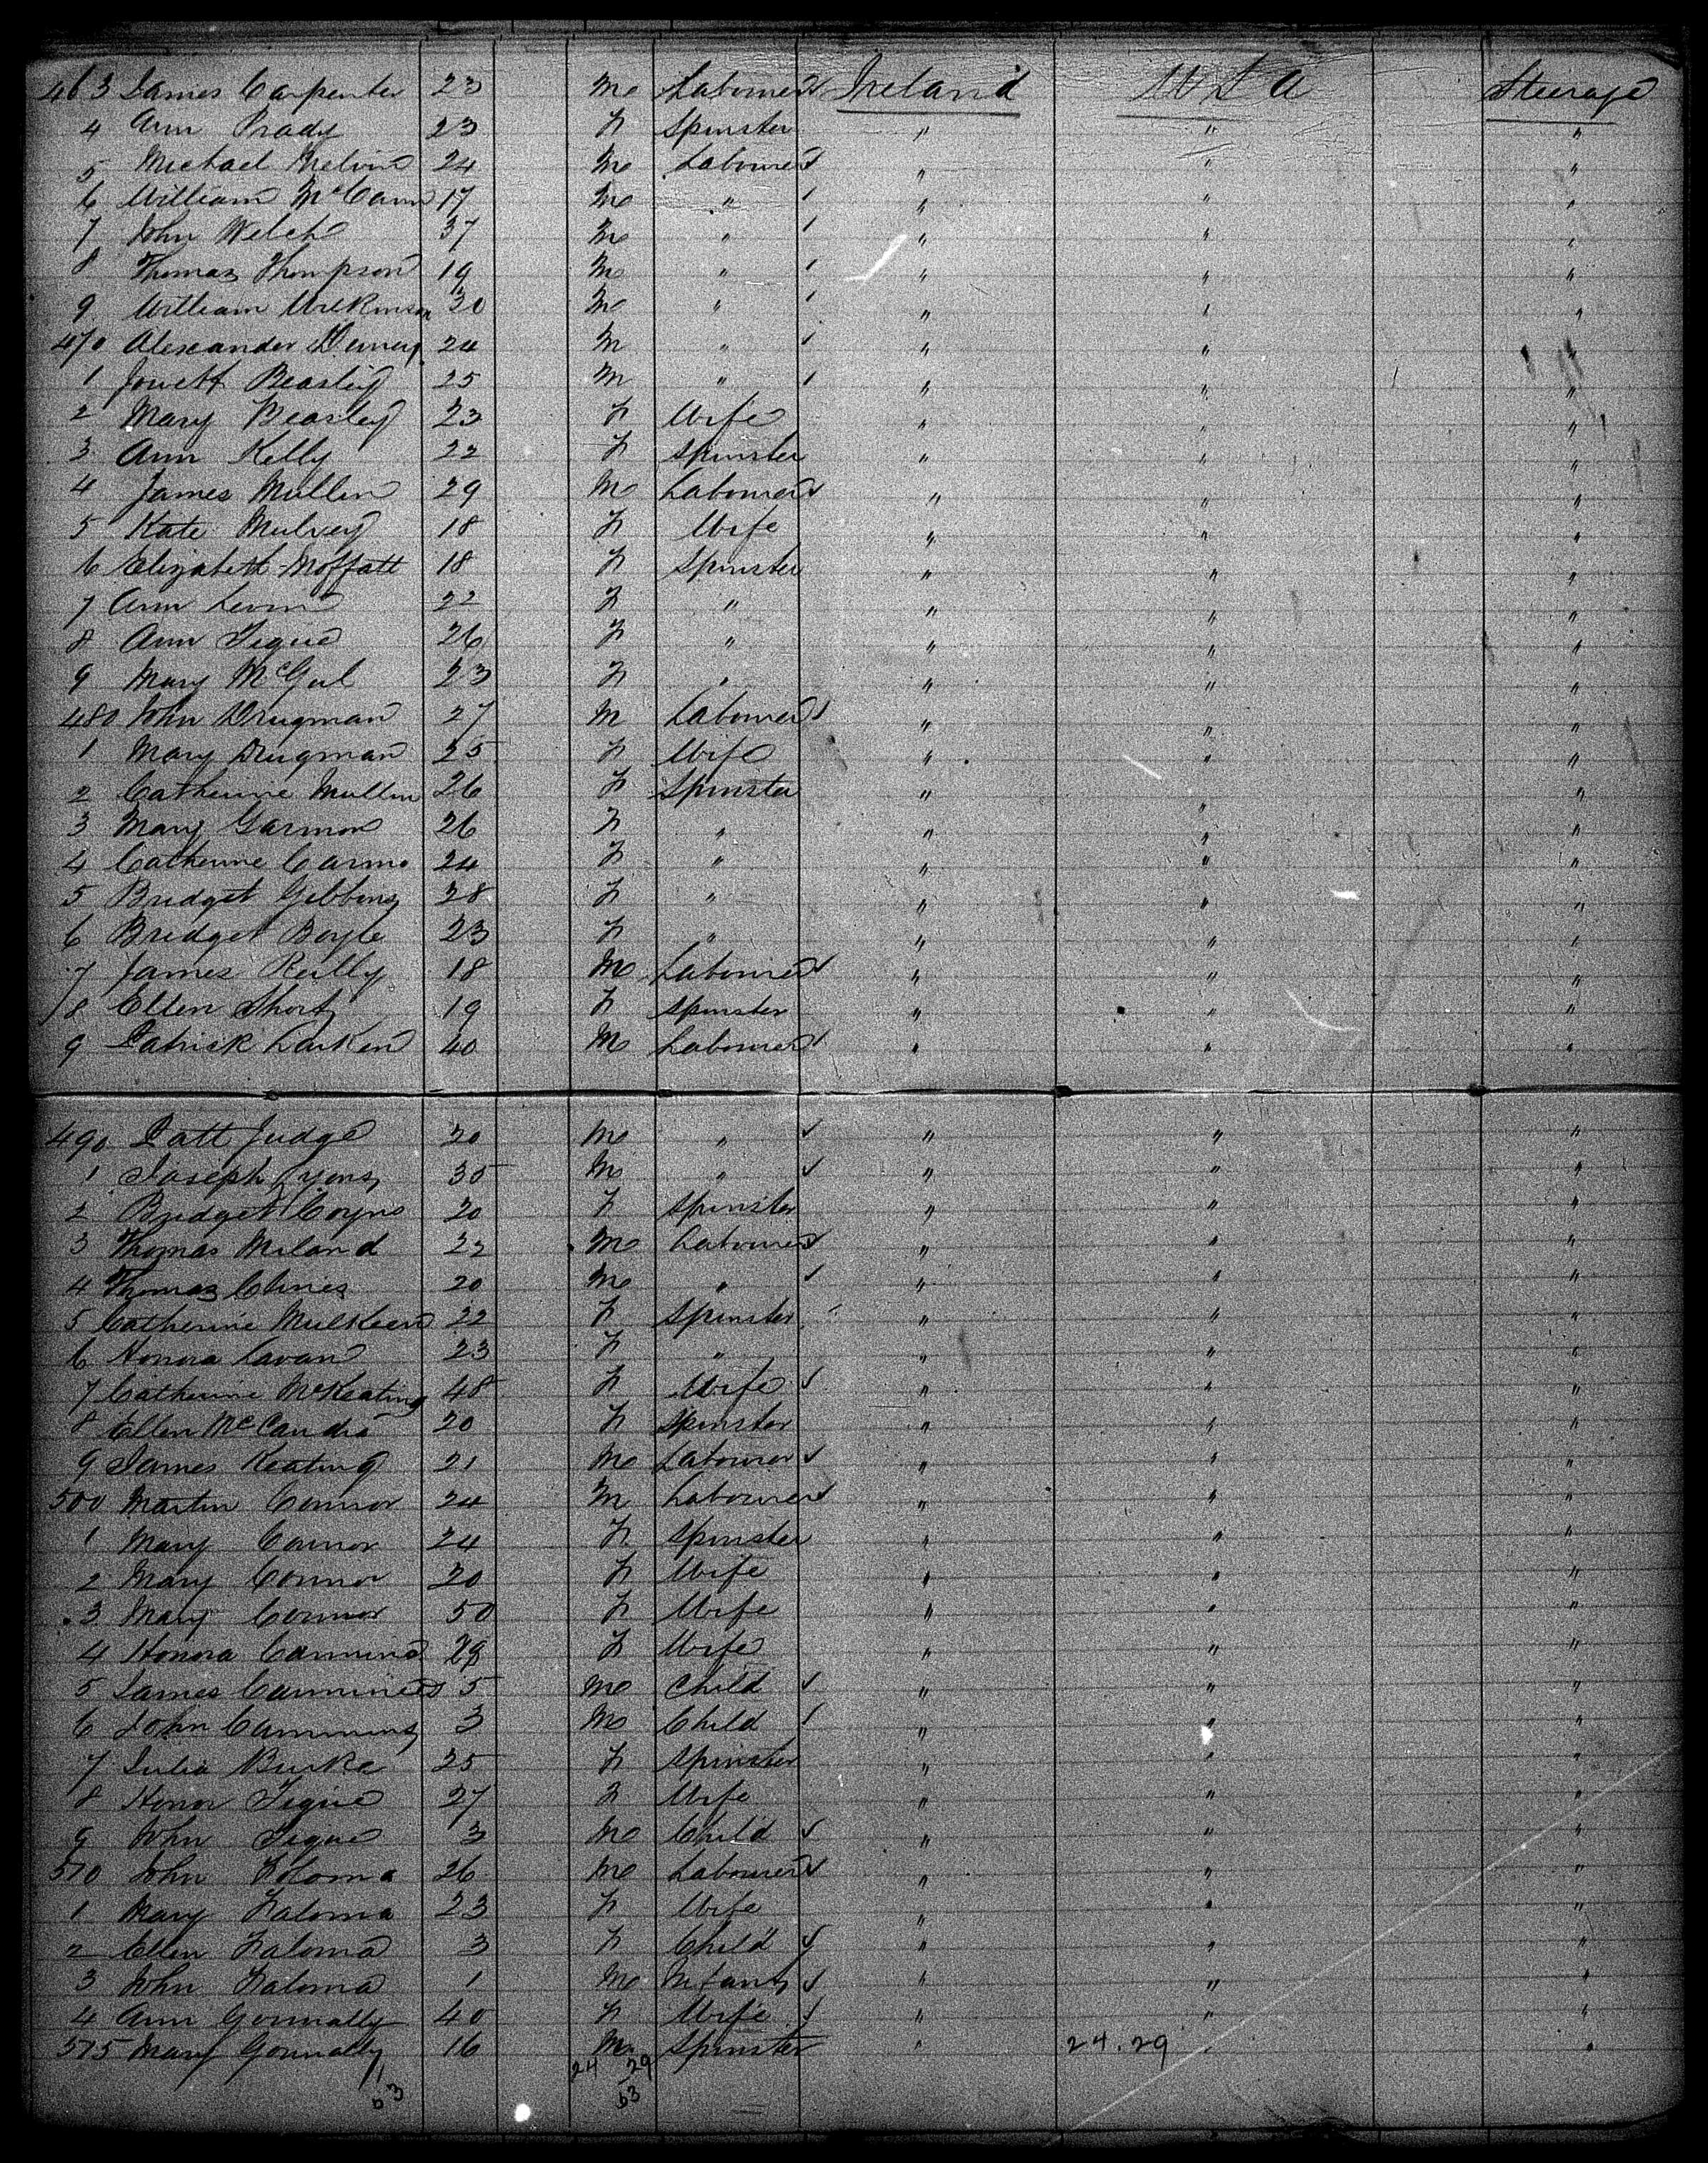 463 James Carpenter 23 M Labourer Ireland U S A Steerage
4 Ann Prady 23 F Spinster " " "
5 Michael Melvin 24 M Labourer " " "
6 William McCann 17 M " " " "
7 John Welch 37 M " " " "
8 Thomas Thompson 19 M " " " "
9 William Wilkinson 30 M " " " "
470 Alexander 24 M " " " "
1 Jowett Beasley 25 M " " " "
2 Mary Beasley 23 F Wife " " "
3 Ann Kelly 22 F Spinster " " "
4 James Mullin 29 M Labourer " " "
5 Kate Mulvey 18 F Wife " " "
6 Elizabeth Moffatt 18 F Spinster " " "
7 Ann Levin 22 F " " " "
8 Ann Tigue 26 F " " " "
9 Mary McGul 23 F " " " "
480 John Drugman 27 M Labourer " " "
1 Mary Drugman 25 F Wife " " "
2 Catherine Mullin 26 F Spinster " " "
3 Mary Garmon 26 F " " " "
4 Catherine 24 F " " " "
5 Bridget Gibbons 28 F " " " "
6 Bridget Boyle 23 F " " " "
7 James Reilly 18 M Labourer " " "
8 Ellen Short 19 F Spinster " " "
9 Patrick Larken 40 M Labourer " " "
490 Patt Judge 20 M " " " "
1 Joseph Lyons 35 M " " " "
2 Bridget Coyne 20 F Spinster " " "
3 Thomas Miland 22 M Labourer " " "
4 Thomas Clines 20 M " " " "
5 Catherine Mulkeen 22 F Spinster " " "
6 Honora Lavan 23 F " " " "
7 Catherine McKeating 48 F Wife " " "
8 Ellen McCandis 20 F Spinster " " "
9 James Keating 21 M Labourer " " "
500 Martin Connor 24 M Labourer " " "
1 Mary Connor 24 F Spinster " " "
2 Mary Connor 20 F Wife " " "
3 Mary Connor 50 F Wife " " "
4 Honora Cummins F Wife " " "
5 James Cummines 5 M Child " " "
6 John Cummins 3 M Child " " "
7 Julia Burke 25 F Spinster " " "
8 Honor Tigue 27 F Wife " " "
9 John Tigue 3 M Child " " "
510 John Faloma 26 M Labourer " " "
1 Mary Faloma 23 F Wife " " "
2 Ellen Faloma 3 F Child " " "
3 John Faloma 1 M Infant " " "
4 Ann Gonnally 40 F Wife " " "
515 Mary Gonnally 16 M Spinster " 24.29 " "
24 29
53 53